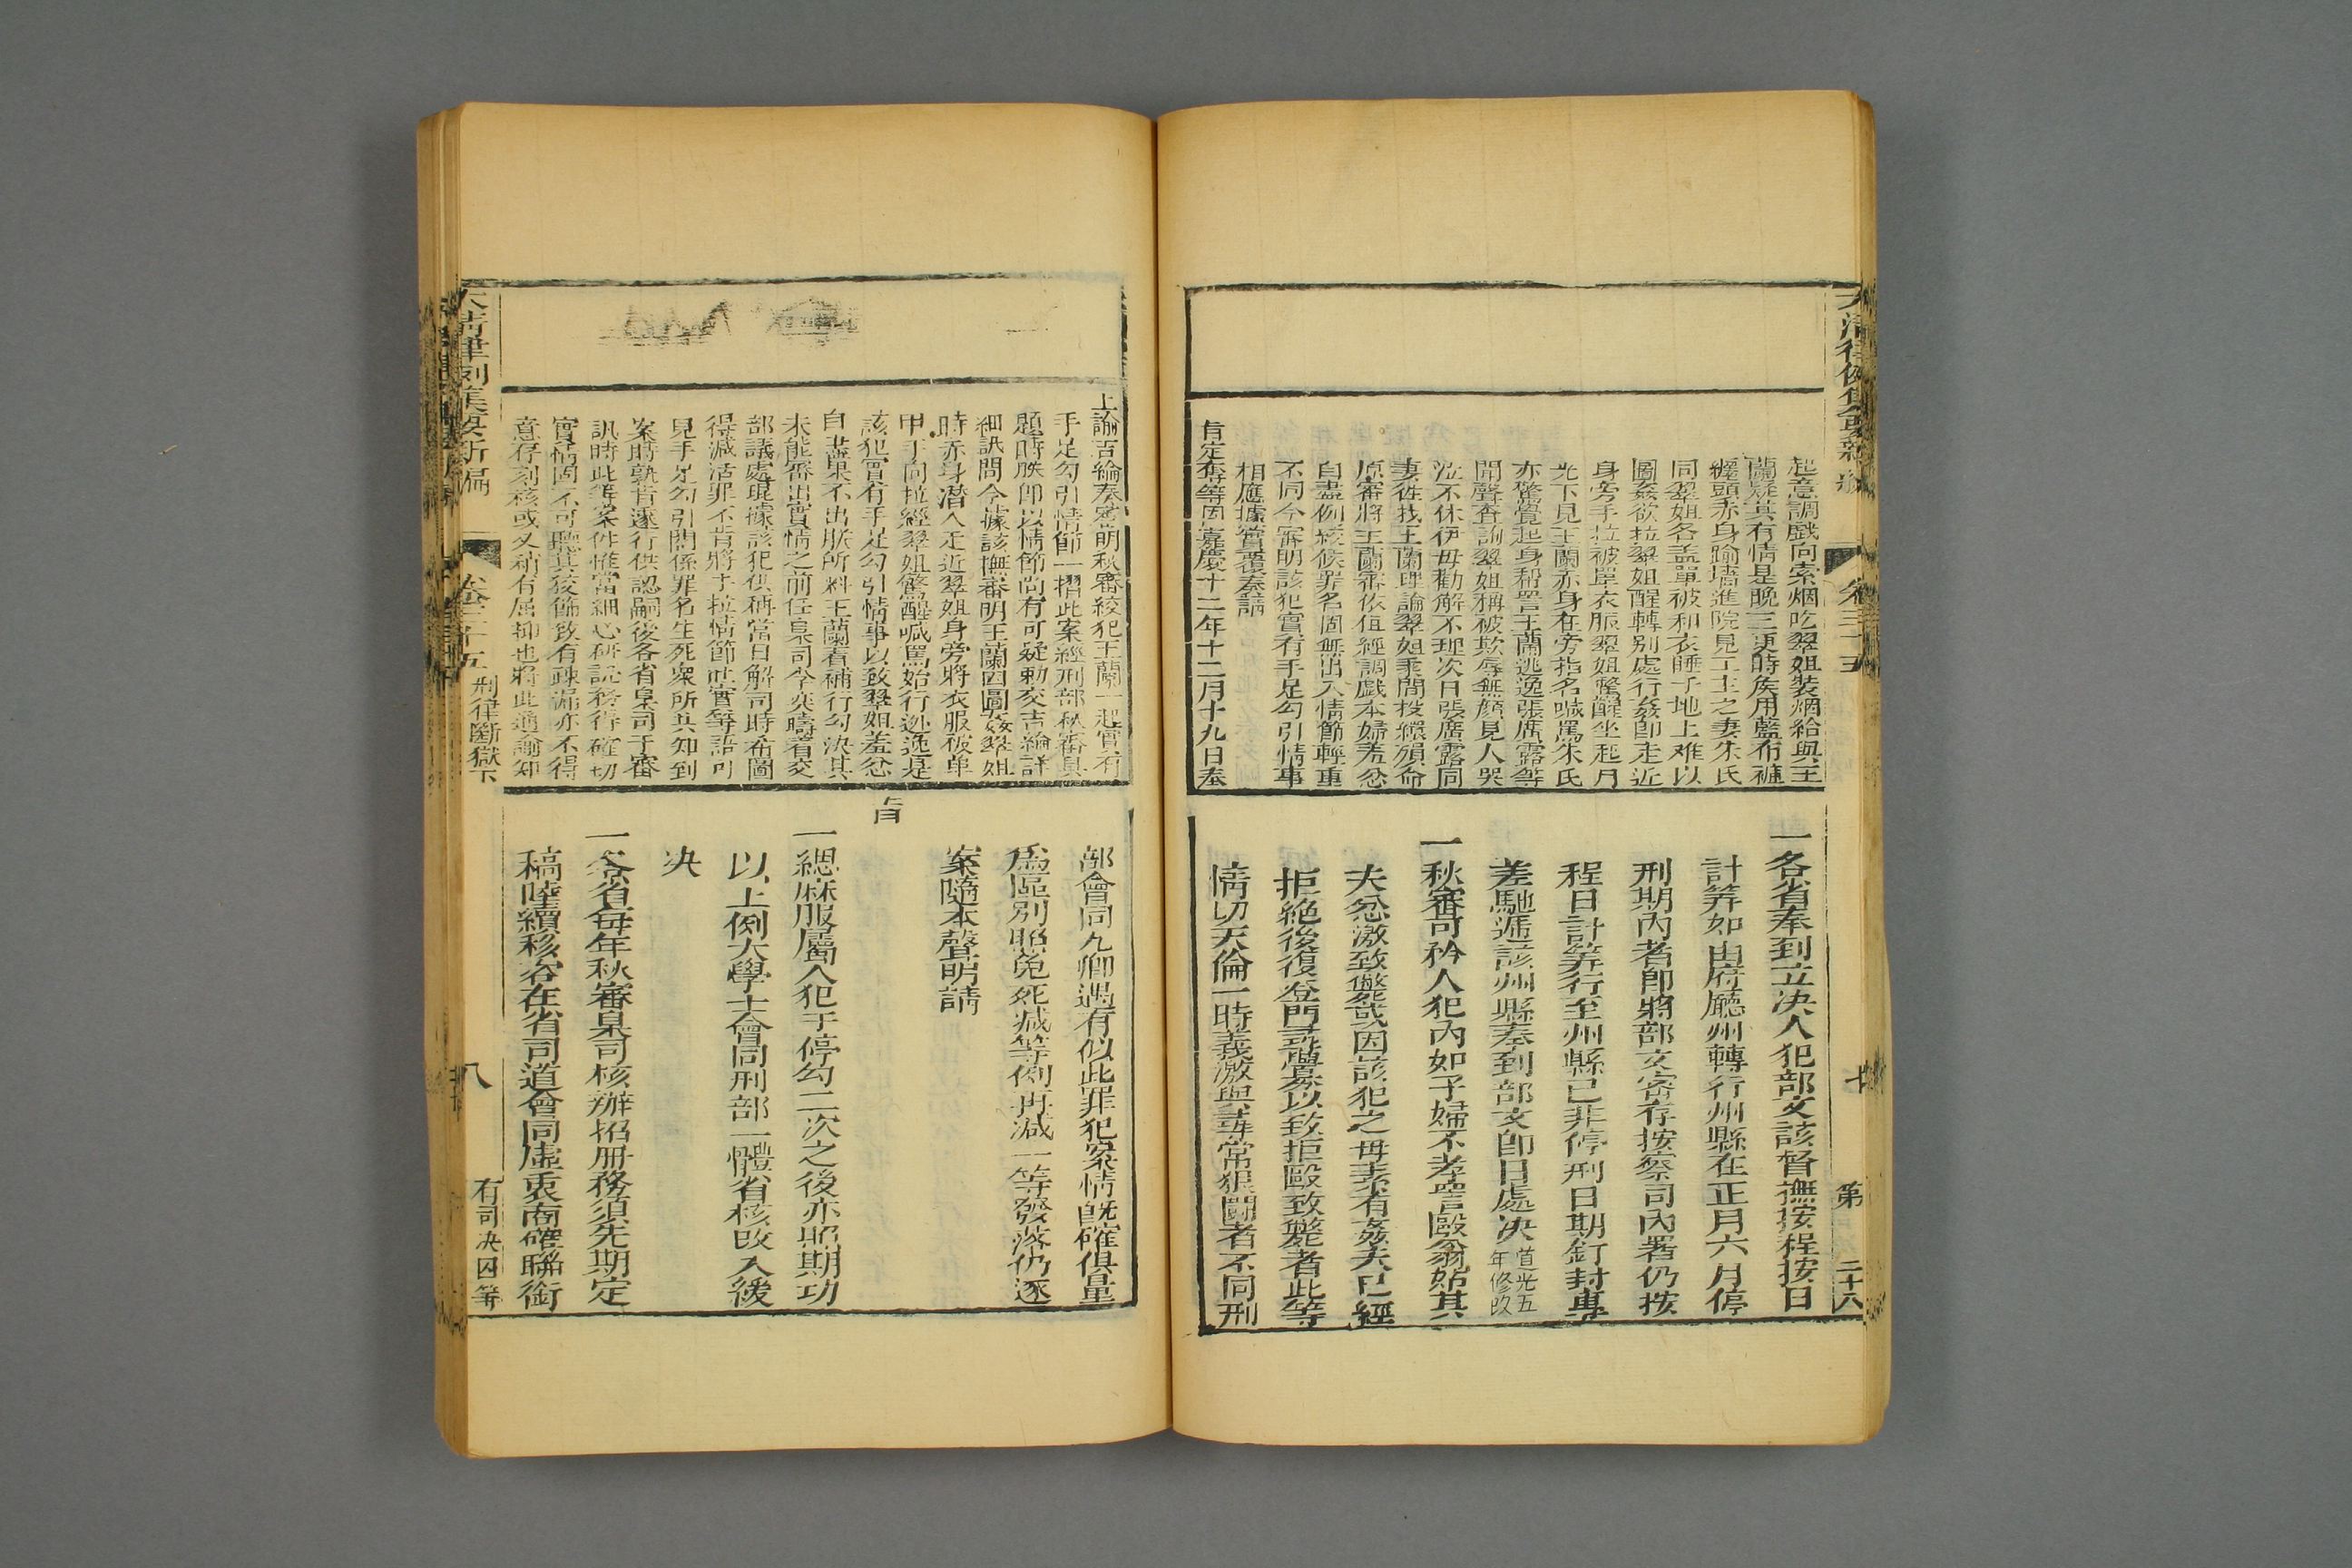 大清律例集要新編
卷三十五
七
第二十六
起意調戲向索烟吃翠姐裝烟給與王
蘭疑其有情是晚三更時候用藍布褲
纏頭赤身踰墻進院見王玉之妻朱氏
同翠姐各盖單被和衣睡于地上难以
圖姦欲拉翠姐醒轉别處行姦卽走近
身旁手拉被單衣服翠姐驚醒坐起月
光下見王蘭赤身在旁指名喊罵朱氏
亦驚覺起身帮詈王蘭逃逸張廣露等
聞聲查詢翠姐稱被欺辱無顔見人哭
泣不休伊母勸解不理次日張廣露同
妻徃找王蘭理論翠姐乘間投繯殞命
原審將王蘭審依但經調戲本婦羞忿
自盡例絞候罪名固無出入情節輕重
不同今審明該犯實有手足勾引情事
相應據實覆奏請
旨定奪等因嘉慶十二年十二月十九日奉
一各省奉到立决人犯部文該督撫按程按日
計算如由府廳州轉行州縣在正月六月停
刑期内者卽將部文密存按察司内署仍按
程日計算行至州縣已非停刑日期釘封專
差馳遞該州縣奉到部文卽日處决道光五年修改
一秋審可矜人犯内如子婦不孝詈毆翁姑其
夫忿激致斃或因該犯之母素有姦夫已經
拒絶後復登門尋釁以致拒毆致斃者此等
情切天倫一時義激與尋常狠鬬者不同刑
上諭吉綸奏審明秋審絞犯王蘭一起實有
手足勾引情節一摺此案經刑部秋審具
題時朕卽以情節尚有可疑勅交吉綸詳
細訊問今據該撫審明王蘭因圖姦翠姐
時赤身潜入走近翠姐身旁將衣服被单
甲手向拉經翠姐驚醒喊罵始行逃逸是
該犯實有手足勾引情事以致翠姐羞忿
自盡果不出朕所料王蘭着補行勾决其
未能審出實情之前任臬司今奕疇着交
部議處琨據該犯供稱當日解司時希圖
得减活罪不肯將手拉情節吐實等語可
見手足勾引關係罪名生死衆所共知到
案時孰肯遂行供認嗣後各省臬司于審
訊時此等案件惟當細心研訊務得確切
實情固不可聽其狡餙致有疎漏亦不得
意存刻核或又稍有屈抑也將此通諭知
部會同九卿遇有似此罪犯案情旣確俱量
爲區别照免死减等例再减一等發落仍逐
案隨本聲明請
旨
一緦麻服屬人犯于停勾二次之後亦照期功
以上例大學士會同刑部一體省核改入緩
决
一各省每年秋審臬司核辦招册務須先期定
稿陸續移咨在省司道會同虛衷商確聯銜
大清律例集要新編
卷三十五
刑律斷獄下
八
有司决囚等